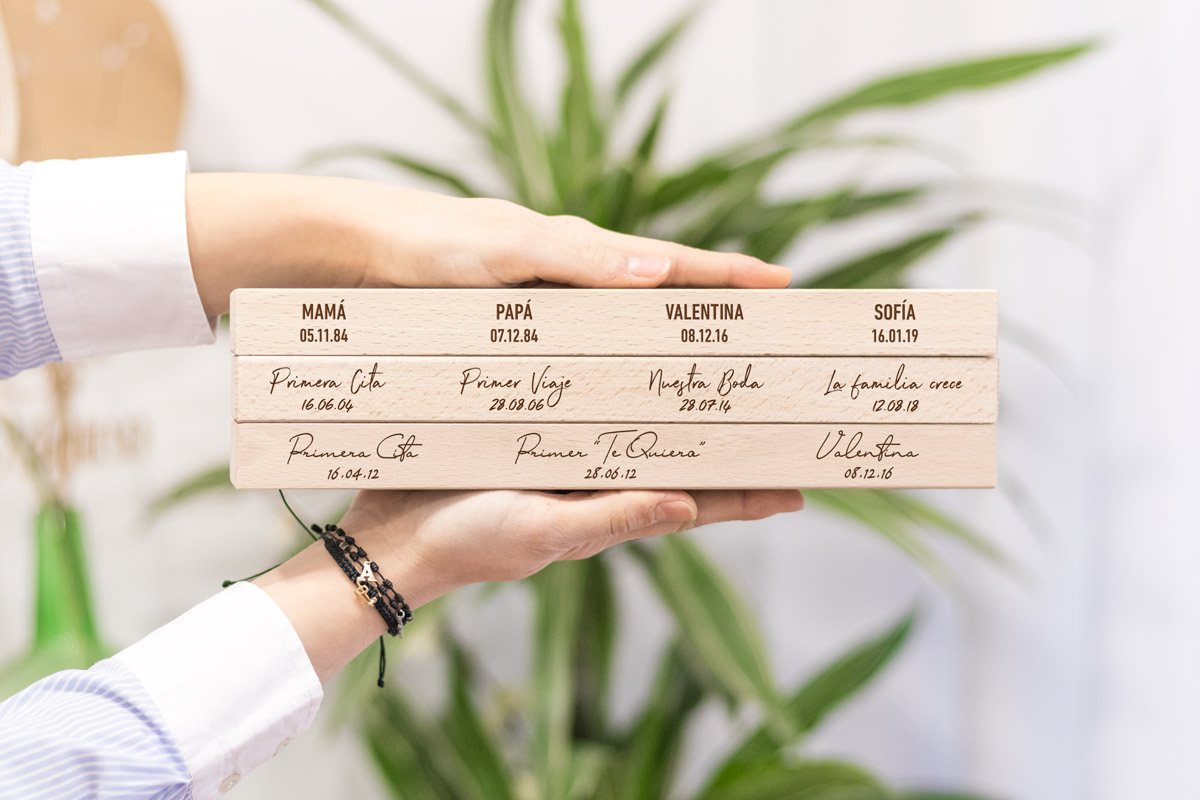 MAMÁ PAPÁ VALENTINA SOFÍA
05.11.84 07.12.84 08.12.16 16.01.19
Primera Cita Primer Viaje Nuestra Boda La familia crece
16.06.04 28.08.06 28.07.14 12.08.18
Primera Cita Primer "Te Quiero" Valentina
16.04.12 28.06.12 08.12.16